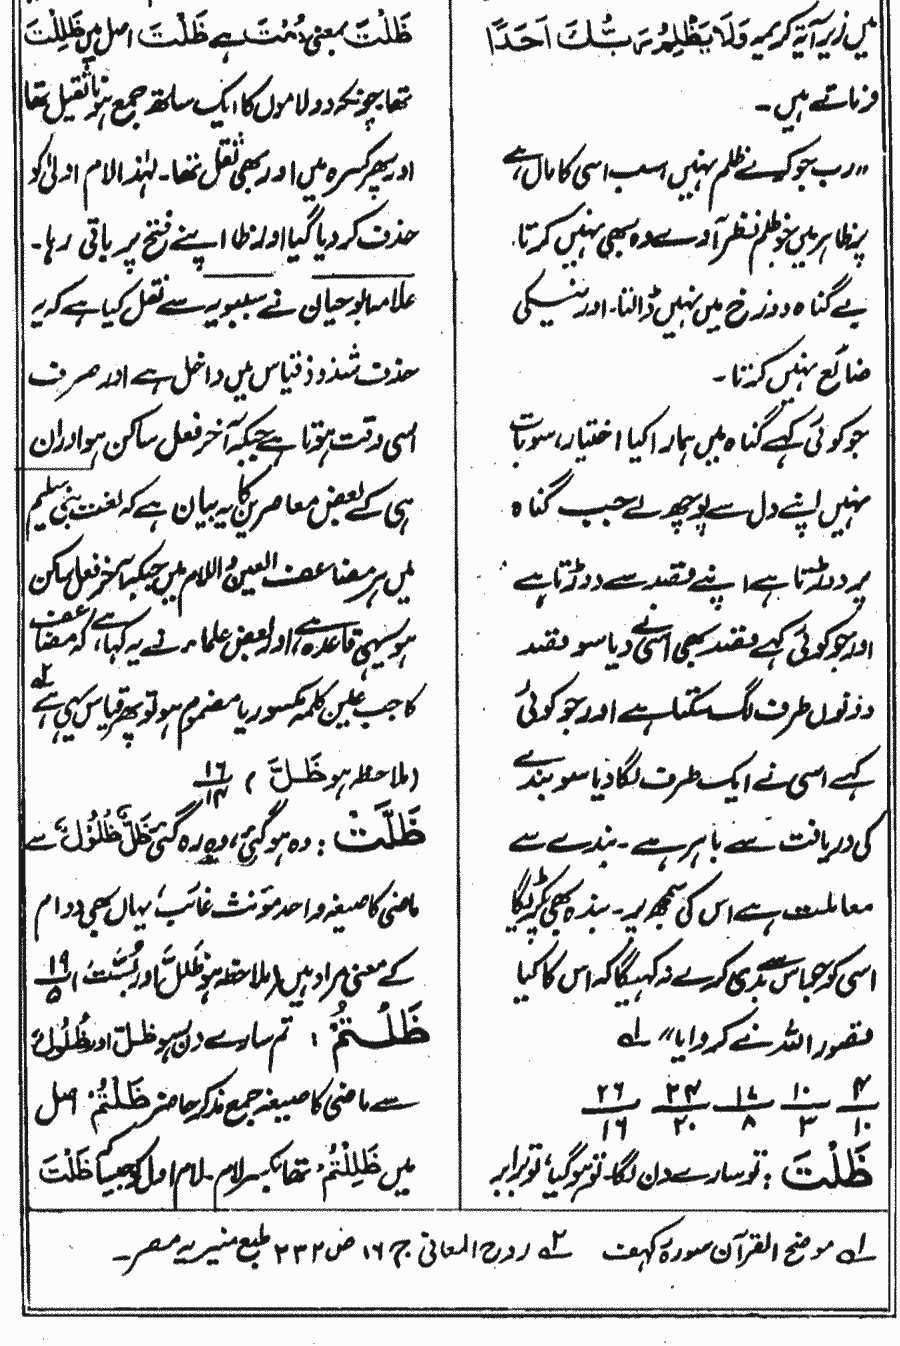 میں زیر آیۃ کریمہ وَلَا يَظْلِمُ رَبُّكَ اَحَدًا
فرماتے ہیں۔
"رب جو کرے ظلم نہیں سب اسی کا مال ہے
پر ظاہر میں جو ظلم نظر آوے سو وہ بھی نہیں کرتا
بے گناہ دوزخ میں نہیں ڈالتا۔ اور نیکی
ضائع نہیں کرتا۔
جو کوئی کہے گناہ میں ہمارا کیا اختیار، سو بات
نہیں اپنے دل سے پوچھ لے جب گناہ
پر دوڑتا ہے اپنے قصد سے دوڑتا ہے
اور جو کوئی کہے قصد بھی اسی نے دیا سو قصد
دونوں طرف لگ سکتا ہے اور جو کوئی
کہے اسی نے ایک طرف لگا دیا سو بندے
کی دریافت سے باہر ہے۔ بندے سے
معاملت ہے اس کی سمجھ پر۔ بندہ بھی پکڑیگا
اسی کو جو اس سے بدی کرے نہ کہیگا کہ اس کا کیا
قصور اللہ نے کروایا" لہ
۴/۱۰ ۱۰/۳ ۱۷/۸ ۲۴/۲۰ ۲۶/۱۶
ظَلْتَ : تو سارے دن لگا۔ تو ہو گیا، تو برابر
ظَلْتَ بمعنی دُمْتَ ہے ظَلْتَ اصل میں ظَلِلْتَ
تھا چونکہ دو لاموں کا ایک ساتھ جمع ہونا ثقیل تھا
اور پھر کسرہ میں اور بھی ثقل تھا۔ لہٰذا لام اولیٰ کو
حذف کر دیا گیا اور ظا اپنے فتح پر باقی رہا۔
علامہ ابو حیان نے سیبویہ سے نقل کیا ہے کہ یہ
حذف شذوذ قیاس میں داخل ہے اور صرف
اسی وقت ہوتا ہے جبکہ آخر فعل ساکن ہو اور ان
ہی کے بعض معاصرین کا یہ بیان ہے کہ لغت بنی سلیم
میں ہر مضاعف العین و اللام میں جبکہ آخر فعل ساکن
ہو یہی قاعدہ ہے، اور بعض علماء نے یہ کہا ہے کہ مضاعف
کا جب عین کلمہ مکسور یا مضموم ہو تو پھر قیاس یہی ہے ۲ہ
(ملاحظہ ہو ظَلَّ) ۱۶/۱۴
ظَلَّتْ : وہ ہو گئی، وہ رہ گئی ظَلٌّ ظُلُوْلٌ سے
ماضی کا صیغہ واحد مؤنث غائب، یہاں بھی دوام
کے معنی مراد ہیں (ملاحظہ ہو ظَلَّ اور لَسْتَ) ۱۹/۵
ظَلْتُمْ : تم سارے دن رہو ظلّ اور ظُلُولٌ
سے ماضی کا صیغہ جمع مذکر حاضر ظَلْتُمْ اصل
میں ظَلِلْتُمْ تھا بکسر لام۔ لام اول کو جیسا ظَلْتَ
لہ موضح القرآن سورۃ کہف ۲ہ روح المعانی ج ۱۶ ص ۲۳۲ طبع منیریہ مصر۔